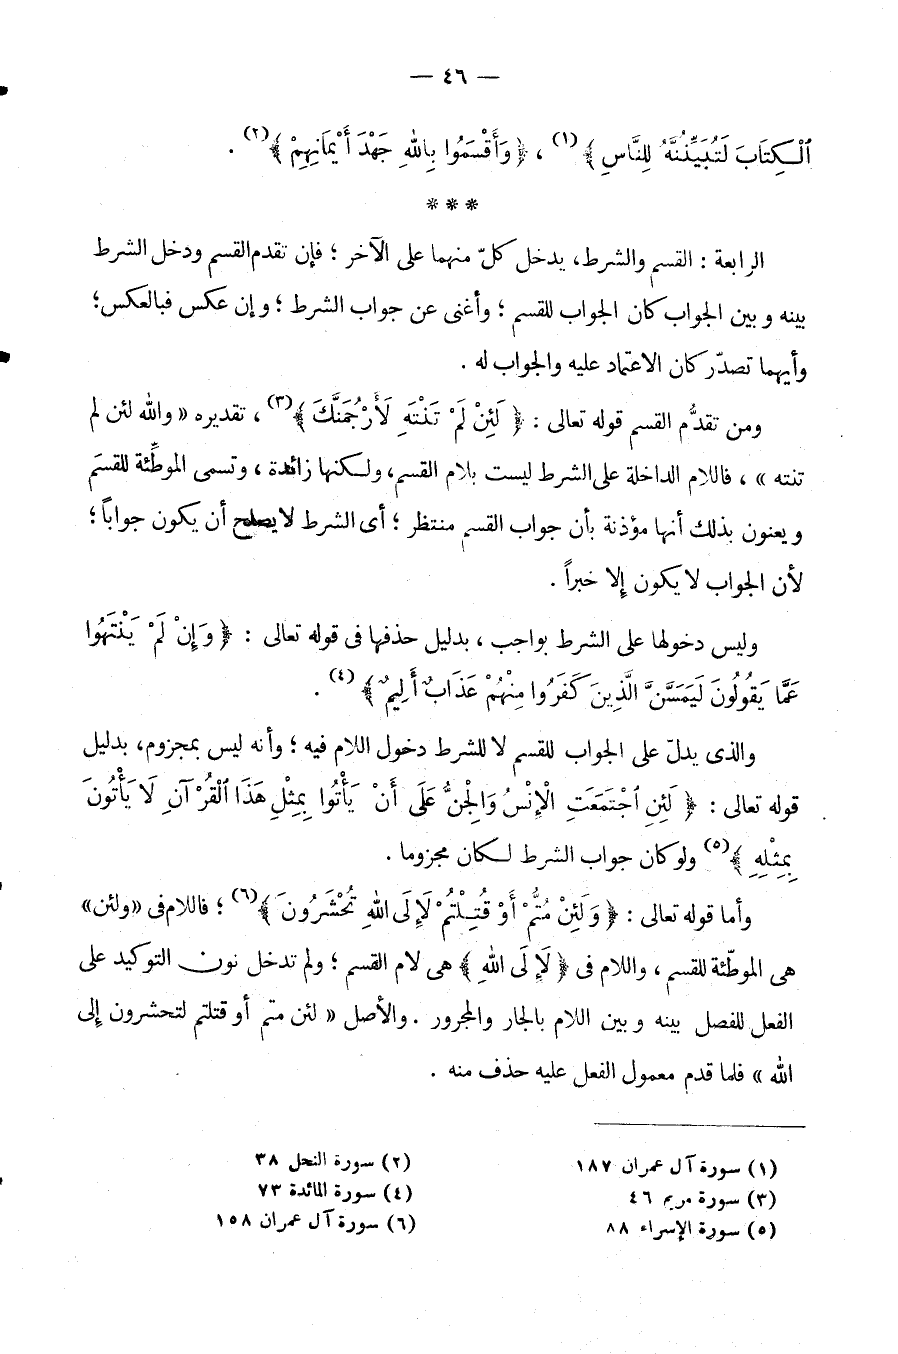 — ٤٦ —
ٱلْكِتَابَ لَتُبَيِّنُنَّهُ لِلنَّاسِ ﴾(١) ، ﴿ وَأَقْسَمُوا بِاللهِ جَهْدَ أَيْمَانِهِمْ ﴾(٢) .
* * *
الرابعة : القسم والشرط، يدخل كلّ منهما على الآخر ؛ فإن تقدم القسم ودخل الشرط
بينه و بين الجواب كان الجواب للقسم ؛ وأغنى عن جواب الشرط ؛ و إن عكس فبالعكس؛
وأيهما تصدّر كان الاعتماد عليه والجواب له .
ومن تقدُّم القسم قوله تعالى : ﴿ لَئِنْ لَمْ تَنْتَهِ لَأَرْجُمَنَّكَ ﴾(٣) ، تقديره « والله لئن لم
تنته » ، فاللام الداخلة على الشرط ليست بلام القسم، ولكنها زائدة ، وتسمى الموطِّئة للقسَم
و يعنون بذلك أنها مؤذنة بأن جواب القسم منتظر ؛ أى الشرط لا يصلح أن يكون جواباً ؛
لأن الجواب لا يكون إلا خبراً .
وليس دخولها على الشرط بواجب ، بدليل حذفها فى قوله تعالى : ﴿ وَإِنْ لَمْ يَنْتَهُوا
عَمَّا يَقُولُونَ لَيَمَسَّنَّ الَّذِينَ كَفَرُوا مِنْهُمْ عَذَابٌ أَلِيمٌ ﴾(٤) .
والذى يدلّ على الجواب للقسم لا للشرط دخول اللام فيه ؛ وأنه ليس بمجزوم، بدليل
قوله تعالى : ﴿ لَئِنِ ٱجْتَمَعَتِ الْإِنْسُ وَالْجِنُّ عَلَى أَنْ يَأْتُوا بِمِثْلِ هَذَا ٱلْقُرْآنِ لَا يَأْتُونَ
بِمِثْلِهِ ﴾(٥) ولو كان جواب الشرط لكان مجزوما .
وأما قوله تعالى : ﴿ وَلَئِنْ مُتُّمْ أَوْ قُتِلْتُمْ لَإِلَى اللهِ تُحْشَرُونَ ﴾(٦) ؛ فاللام فى «ولئن»
هى الموطّئة للقسم ، واللام فى ﴿ لَإِلَى اللهِ ﴾ هى لام القسم ؛ ولم تدخل نون التوكيد على
الفعل للفصل بينه و بين اللام بالجار والمجرور . والأصل « لئن متم أو قتلتم لتحشرون إلى
الله » فلما قدم معمول الفعل عليه حذف منه .
(١) سورة آل عمران ١٨٧ (٢) سورة النحل ٣٨
(٣) سورة مريم ٤٦ (٤) سورة المائدة ٧٣
(٥) سورة الإسراء ٨٨ (٦) سورة آل عمران ١٥٨